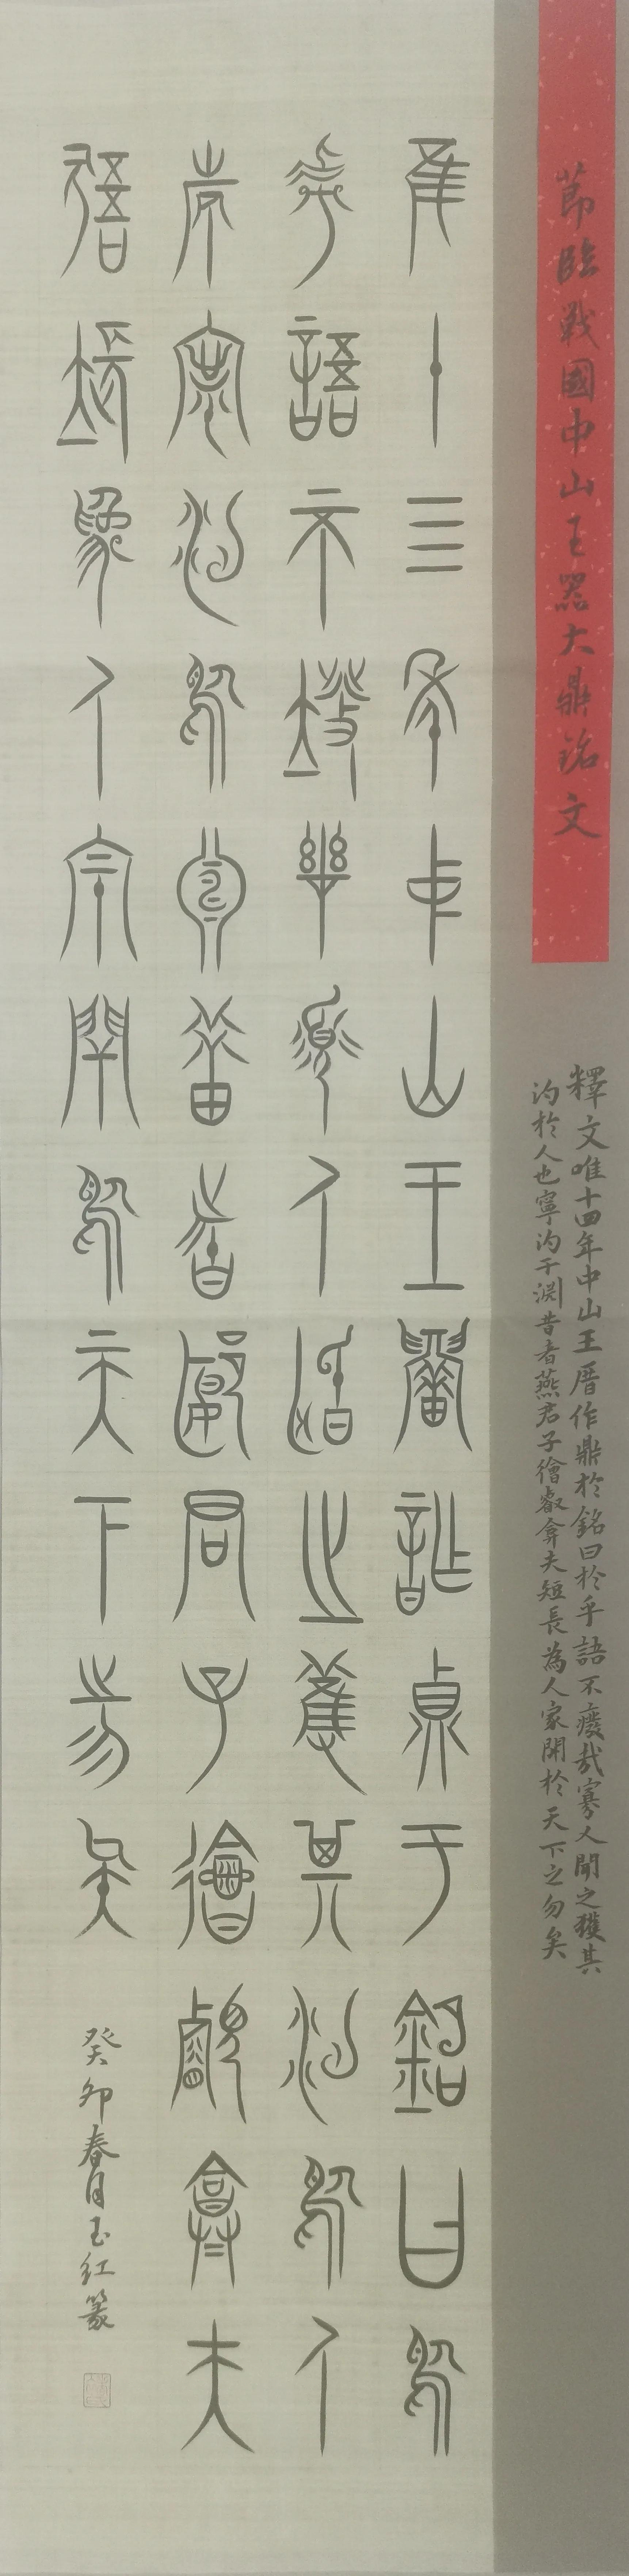 節臨戰國中山王器大鼎銘文
釋文唯十四年中山王厝作鼎於銘曰於乎語不廢哉寡人聞之獲其
汋於人也寧汋于淵昔者燕君子徻叡弇夫短長為人家閑於天下之勿矣
隹十亖年中山王厝詐鼎于銘曰於
虖語不廢哉寡人聞之蒦其汋於人
也寧汋於淵昔者燕君子徻叡弇夫
語長為人宗閈於天下之勿矣
癸卯春月玉紅篆